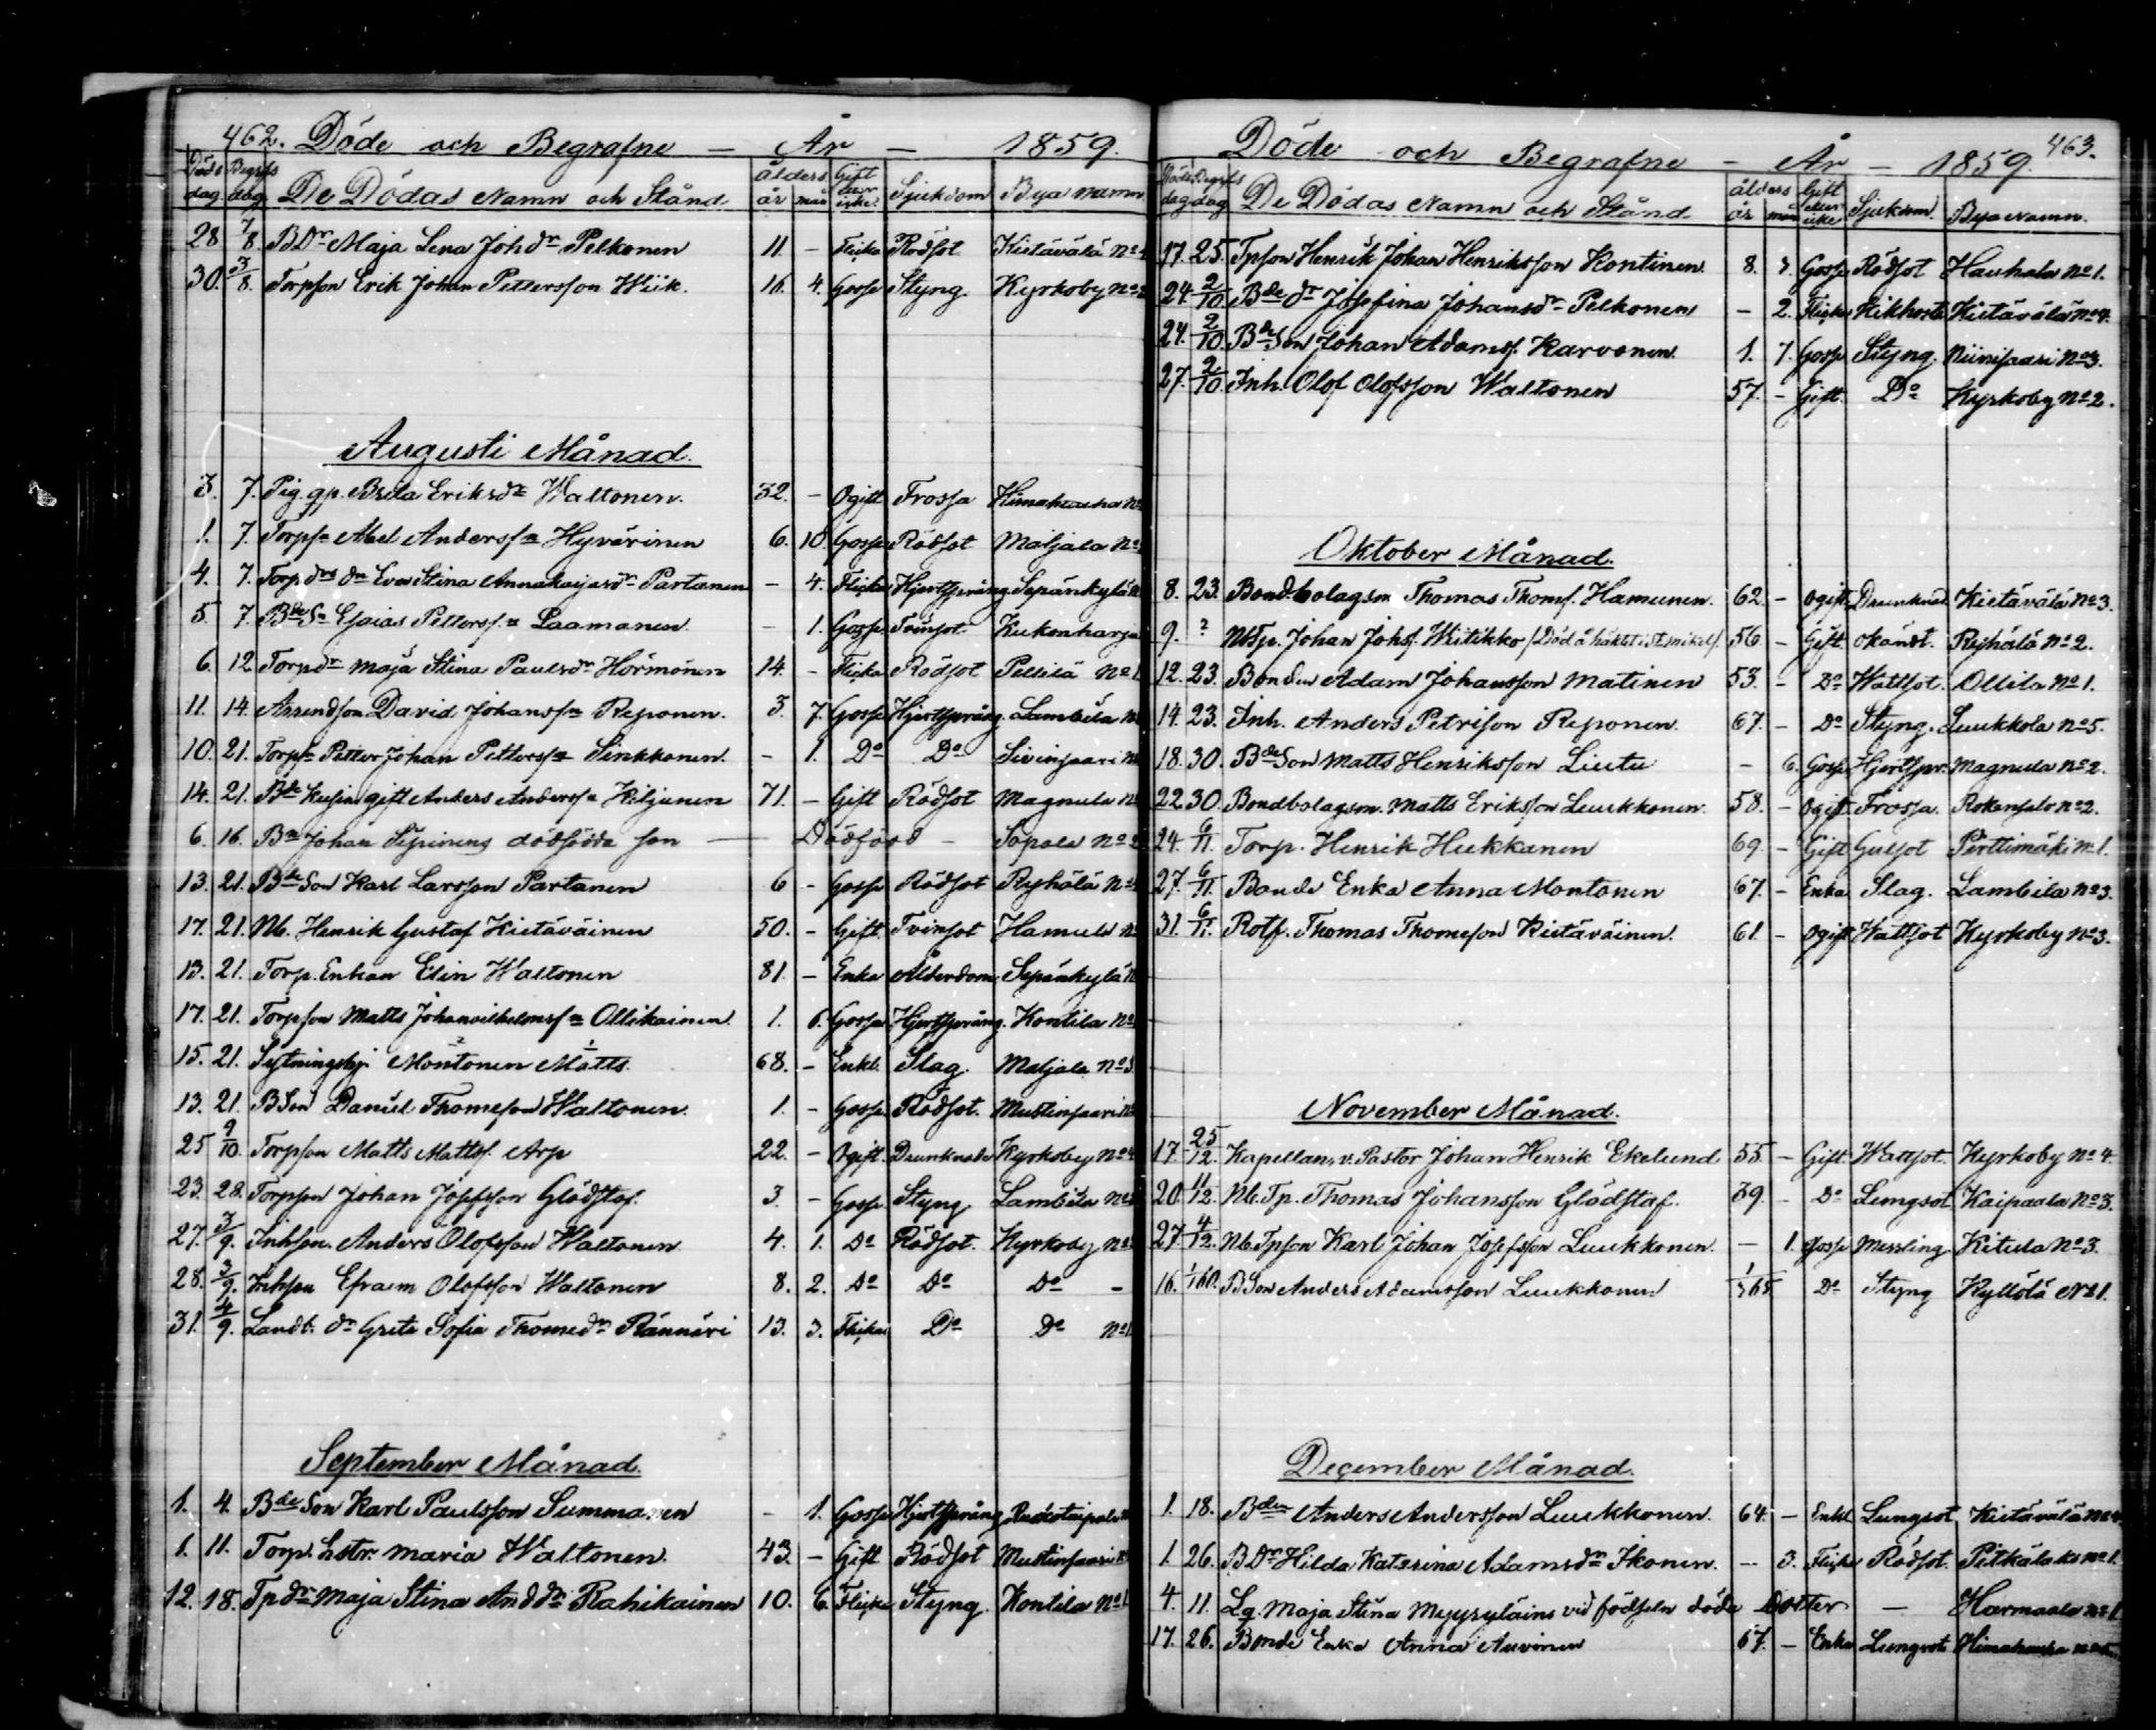 462. Döde och Begrafne — År — 1859.
Döds dag Begrfs dag De Dödas Namn och Stånd ålders år mån Gift eller icke Sjukdom Bya namn
28 7/8. BDr Maja Lena Johdr Pelkonen 11 - Flicka Rödsot Kietävälä No 4
30. 3/8. Torpson Erik Johan Pettersson Wiik. 16. 4. Gosse Styng. Kyrkoby No
Augusti Månad.
3. 7. Pig. gp. Brita Eriksdr Waltonen. 32. - Ogift Frossa Himahauha No
1. 7. Torpsn Abel Anderssn Hyvärinen 6. 10. Gosse Rödsot Maljala No
4. 7. Torp drs dr Eva Stina Annakajsadr Partanen - 4. Flicka Hjertsprång Sepänkylä N
5. 7. Bde Sn Esaias Petterssn Laamanen - 1. Gosse Tvinsot. Kukonharju
6. 12 Torpdr Maja Stina Paulsdr Hörmönen 14. - Flicka Rödsot Pellilä No 1.
11. 14. Arrendson David Johanssn Reponen. 3. 7. Gosse Hjertsprång. Lambila No
10. 21. Torpsn Petter Johan Petterssn Sinkkonen. - 1. Do Do Sivinsaari No
14. 21. Bde Kusin gift Anders Anderssn Hiljanen 71. - Gift Rödsot Magnula No
6. 16. Bn Johan Sepinens dödfödda son — Dödfödd - Sopala No
13. 21. Bde Son Karl Larsson Partanen 6 - Gosse Rödsot Ryhälä No
17. 21. Nb. Henrik Gustaf Kietäväinen 50. - Gift Tvinsot Hamula No
13. 21. Torp. Enkan Elin Waltonen 81. - Enka Ålderdom Sepänkylä N
17. 21. Torpson Matts Johanvilhelmssn Ollikainen. 1. 6. Gosse Hjertsprång. Kontila No
15. 21. Sytningshj. Montonen Matts. 68. - Enkl. Slag. Maljala No 3
13. 21. BSon Daniel Thomeson Waltonen. 1. - Gosse Rödsot. Mustinsaari N
25 9/10. Torpson Matts Mattss. Arp 22. - Ogift. Drunknade Kyrkoby No 4
23. 28. Torpson Johan Josefsson Glödstaf. 3. - Gosse Styng Lambila No
27. 3/9. Inhson. Anders Olofsson Waltonen 4. 1. Do Rödsot. Kyrkoby No
28. 3/9. Inhson Efraim Olofsson Waltonen 8. 2. Do Do Do -
31. 4/9. Landb. dr Greta Sofia Thomedr Rännäri 13. 3. Flicka Do Do No 1
September Månad.
1. 4. Bde Son Karl Paulsson Summanen - 1. Gosse Hjertsprång Ruokotaipale
1. 11. Torp. hstr. Maria Waltonen. 43. - Gift Rödsot Mustinsaari N
12. 18. Tpdr Maja Stina Anddr Rahikainen 10. 6. Flicka Styng. Kontila No 1
Döde och Begrafne - År - 1859. 463.
Döds dag Begrfs dag De Dödas Namn och Stånd ålders år mån Gift eller icke Sjukdom. Bya Namn.
17. 25. Tpson Henrik Johan Henriksson Kontinen 8. 3. Gosse Rödsot Hauhala No 1.
24. 2/10. Bde dr Josefina Johansdr Pelkonen - 2. Flicka Kikhosta Kietävälä No 4.
24. 2/10. Bde Son Johan Adamss. Karvonen. 1. 7. Gosse Styng. Niinisaari No 3.
27. 2/10. Inh. Olof Olofsson Waltonen 57. - Gift. Do Kyrkoby No 2.
Oktober Månad.
8. 23. Bond.bolagsm Thomas Thomss. Hamunen. 62. - Ogift Drunknad. Kietävälä No 3.
9. ? NbTp. Johan Johss. Wiitikko /Död å häktet i St. Mikel/. 56 - Gift okändt. Ryhälä No 2.
12. 23. Bonden Adam Johansson Matinen 53. - Do Wattsot. Ollila No 1.
14. 23. Inh. Anders Petrison Reponen. 67. - Do Styng. Luukkola No 5.
18. 30. Bde Son Matts Henriksson Liutu - 6. Gosse Hjertspr. Magnula No 2.
22. 30. Bondbolagsm. Matts Eriksson Luukkonen. 58. - Ogift Frossa. Rokansalo No 2.
24. 6/11. Torp. Henrik Hukkanen 69. - Gift Gulsot Perttimäki No 1.
27. 6/11. Bonde Enka Anna Montonen 67. - Enka Slag. Lambila No 3.
31. 6/11. Rotf. Thomas Thomeson Kietäväinen. 61. - Ogift Wattsot Kyrkoby No 3.
November Månad.
17. 25/12. Kapellan, v. Pastor Johan Henrik Ekelund 55 - Gift Wattsot. Kyrkoby No 4.
20. 11/12. Nb. Tp. Thomas Johansson Glödstaf. 39. - Do Lungsot Kaipaala No 3.
27. 4/12. Nb Tpson Karl Johan Josefsson Luukkonen. — 1. Gosse Messling Kitula No 3.
16. 1/1 60. BSon Anders Adamsson Luukkonen 1/365 Do Styng Kyllölä No 1.
December Månad.
1. 18. Bden Anders Andersson Luukkonen. 64. - Enkl Lungsot Kietävälä No
1. 26. BDr Hilda Katarina Adamsdr Ikonen. - 3. Flicka Rödsot. Pitkälaks No 1.
4. 11. Lg. Maja Stina Myyryläins vid födseln döda Dotter — Harmaala No 1
17. 26. Bonde Enka Anna Auvinen 67. - Enka Lungsot Himahauha No